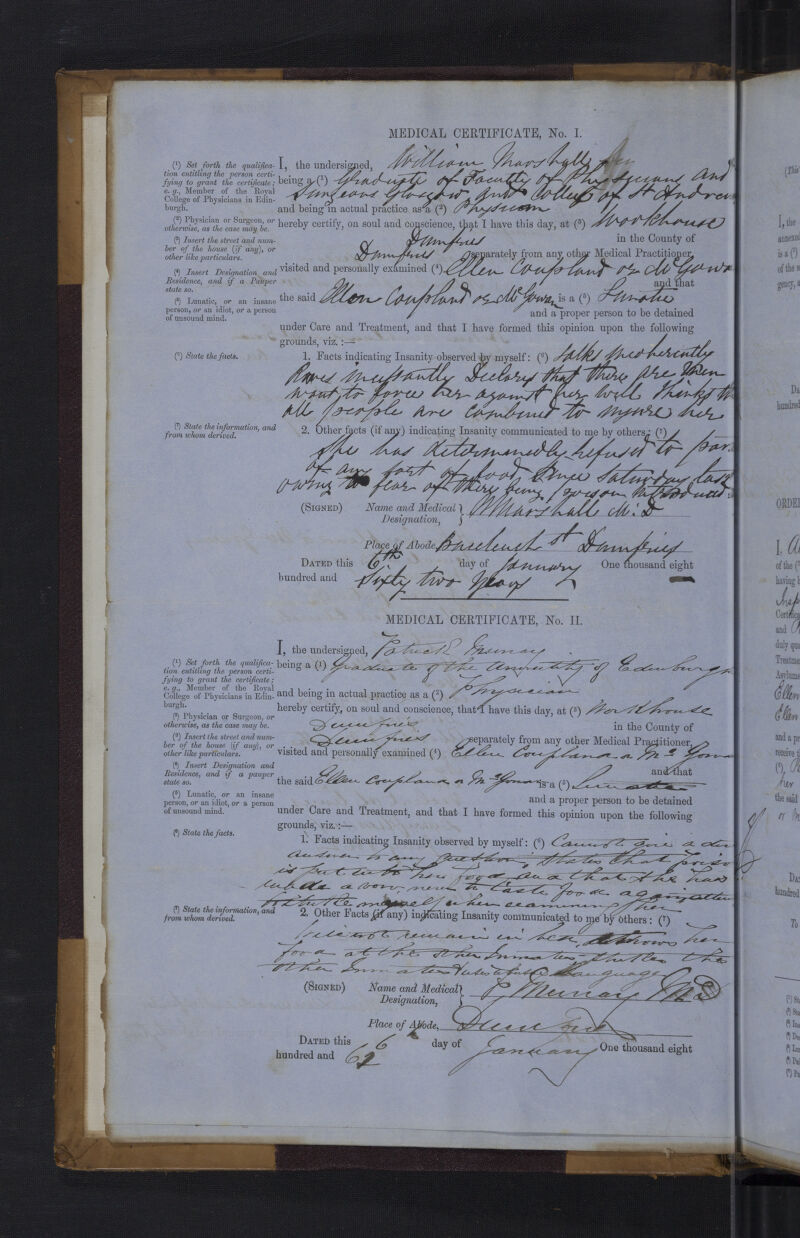 MEDICAL CERTIFICATE, No. I.
(1) Set forth the qualifica-
tion entitling the person certi-
fying to grant the certificate;
e. g., Member of the Royal
College of Physicians in Edin-
burgh.
(2) Physician or Surgeon, or
otherwise, as the case may be.
(3) Insert the street and num-
ber of the house (if any), or
other like particulars.
(4) Insert Designation and
Residence, and if a Pauper
state so.
(5) Lunatic, or an insane
person, or an idiot, or a person
of unsound mind.
(6) State the facts.
(7) State the information, and
from whom derived.
I, the undersigned, William Marshall
being a (1) Graduate of Faculty of Physicians and
Surgeons Glasgow and College of St Andrew
and being in actual practice as a (2) Physician
hereby certify, on soul and conscience, that I have this day, at (3) Workhouse
Dumfries in the County of
Dumfries separately from any other Medical Practitioner,
visited and personally examined (4) Ellen Coupland or McGowa
and that
the said Ellen Coupland or McGowan is a (5) Lunatic
and a proper person to be detained
under Care and Treatment, and that I have formed this opinion upon the following
grounds, viz.:—
1. Facts indicating Insanity observed by myself: (6) Talks incoherently
Raves incessantly Declares that there are Men
want to force her against her will thinks th
all people are combined to injure her
2. Other facts (if any) indicating Insanity communicated to me by others: (7)
She has determinedly refused to par
of any sort of food since Saturday last
owing to fear of there being poison introduced
(SIGNED) Name and Medical Designation, Marshall M.D
Place of Abode, Buccleuch St Dumfries
DATED this 6th day of January One thousand eight
hundred and Sixty two years
MEDICAL CERTIFICATE, No. II.
(1) Set forth the qualifica-
tion entitling the person certi-
fying to grant the certificate;
e. g., Member of the Royal
College of Physicians in Edin-
burgh.
(2) Physician or Surgeon, or
otherwise, as the case may be.
(3) Insert the street and num-
ber of the house (if any), or
other like particulars.
(4) Insert Designation and
Residence, and if a pauper
state so.
(5) Lunatic, or an insane
person, or an idiot, or a person
of unsound mind.
(6) State the facts.
(7) State the information, and
from whom derived.
I, the undersigned, Patrick Murray
being a (1) Graduate of the University of Edinburgh
and being in actual practice as a (2) Physician
hereby certify, on soul and conscience, that I have this day, at (3) Workhouse
Dumfries in the County of
Dumfries separately from any other Medical Practitioner,
visited and personally examined (4) Ellen Coupland or McGowa
and that
the said Ellen Coupland or McGowan is a (5) Lunatic
and a proper person to be detained
under Care and Treatment, and that I have formed this opinion upon the following
grounds, viz.:—
1. Facts indicating Insanity observed by myself: (6) Cannot give a
answer to any question. States that poiso
is put into her food and that she has
made a vow never to taste food again
myself when examining her
2. Other Facts (if any) indicating Insanity communicated to me by others: (7)
Will not remain in bed, throws her
food at the other Inmates, the
other Inmates language
(SIGNED) Name and Medical Designation, P. Murray MD
Place of Abode, Dumfries
DATED this 6th day of January One thousand eight
hundred and 62